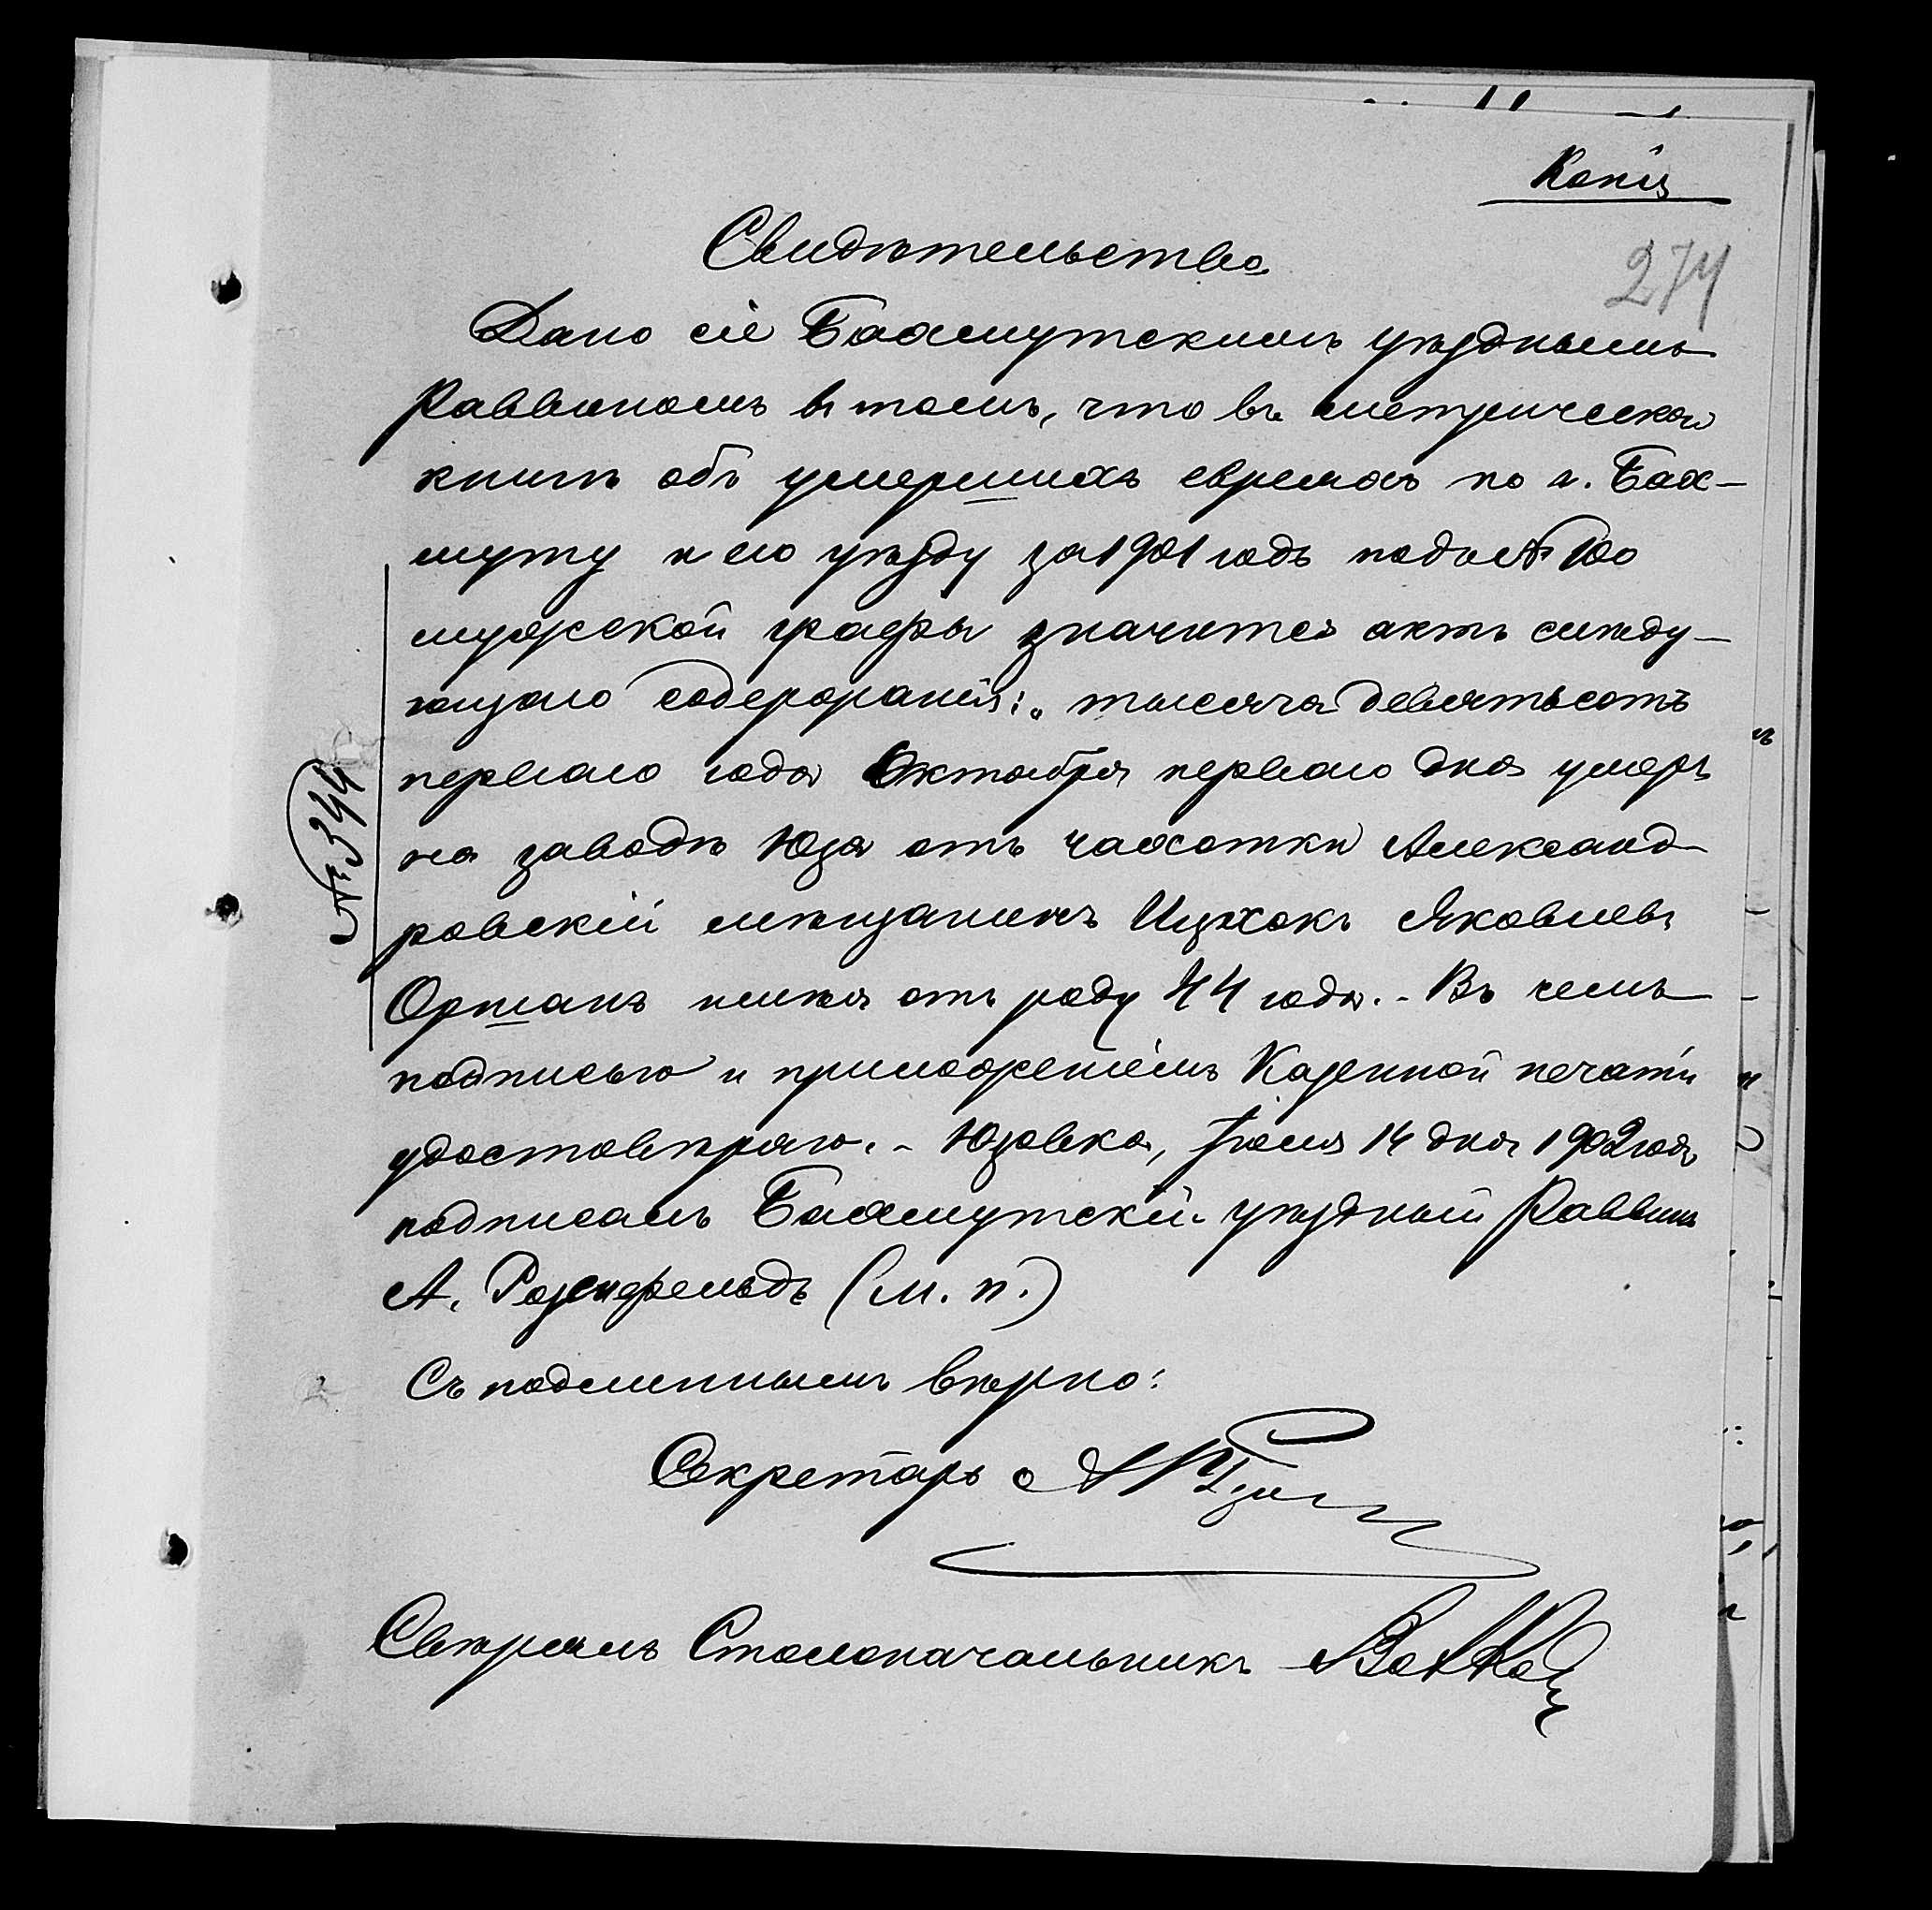 Копія
274
Свидѣтельство
Дано сіе Бахмутскимъ уѣзднымъ
Раввиномъ въ томъ, что въ метрической
книгѣ объ умершихъ евреяхъ по г. Бах-
муту и его уѣзду за 1901 годъ подъ № 100
мужской графы значится актъ слѣду-
ющаго содержанія: „тысяча девятьсотъ
перваго года Октября перваго дня умеръ
на заводѣ Юза отъ чахотки Александ-
ровскій мѣщанинъ Ицхокъ Яковлевъ
Ортанъ имѣя отъ роду 44 года. - Въ чемъ
подписью и приложеніемъ Казенной печати
удостовѣряю. - Юзовка, Іюля 14 дня 1902 года
подписалъ Бахмутскій уѣздный Раввинъ
А. Розенфельдъ (м. п.)
Съ подлиннымъ вѣрно:
Секретарь
Свѣрялъ Столоначальникъ
№ 344